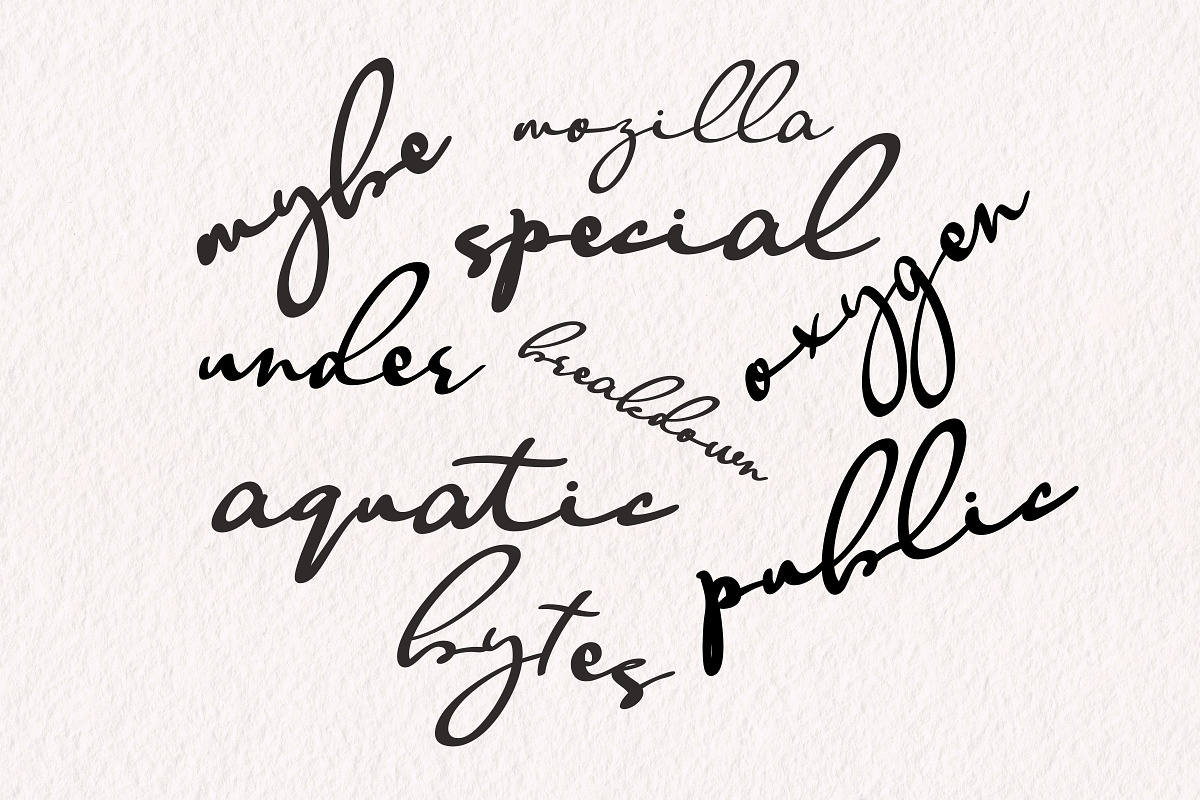 mybe
mozilla
special
oxygen
under
breakdown
aquatic
public
bytes